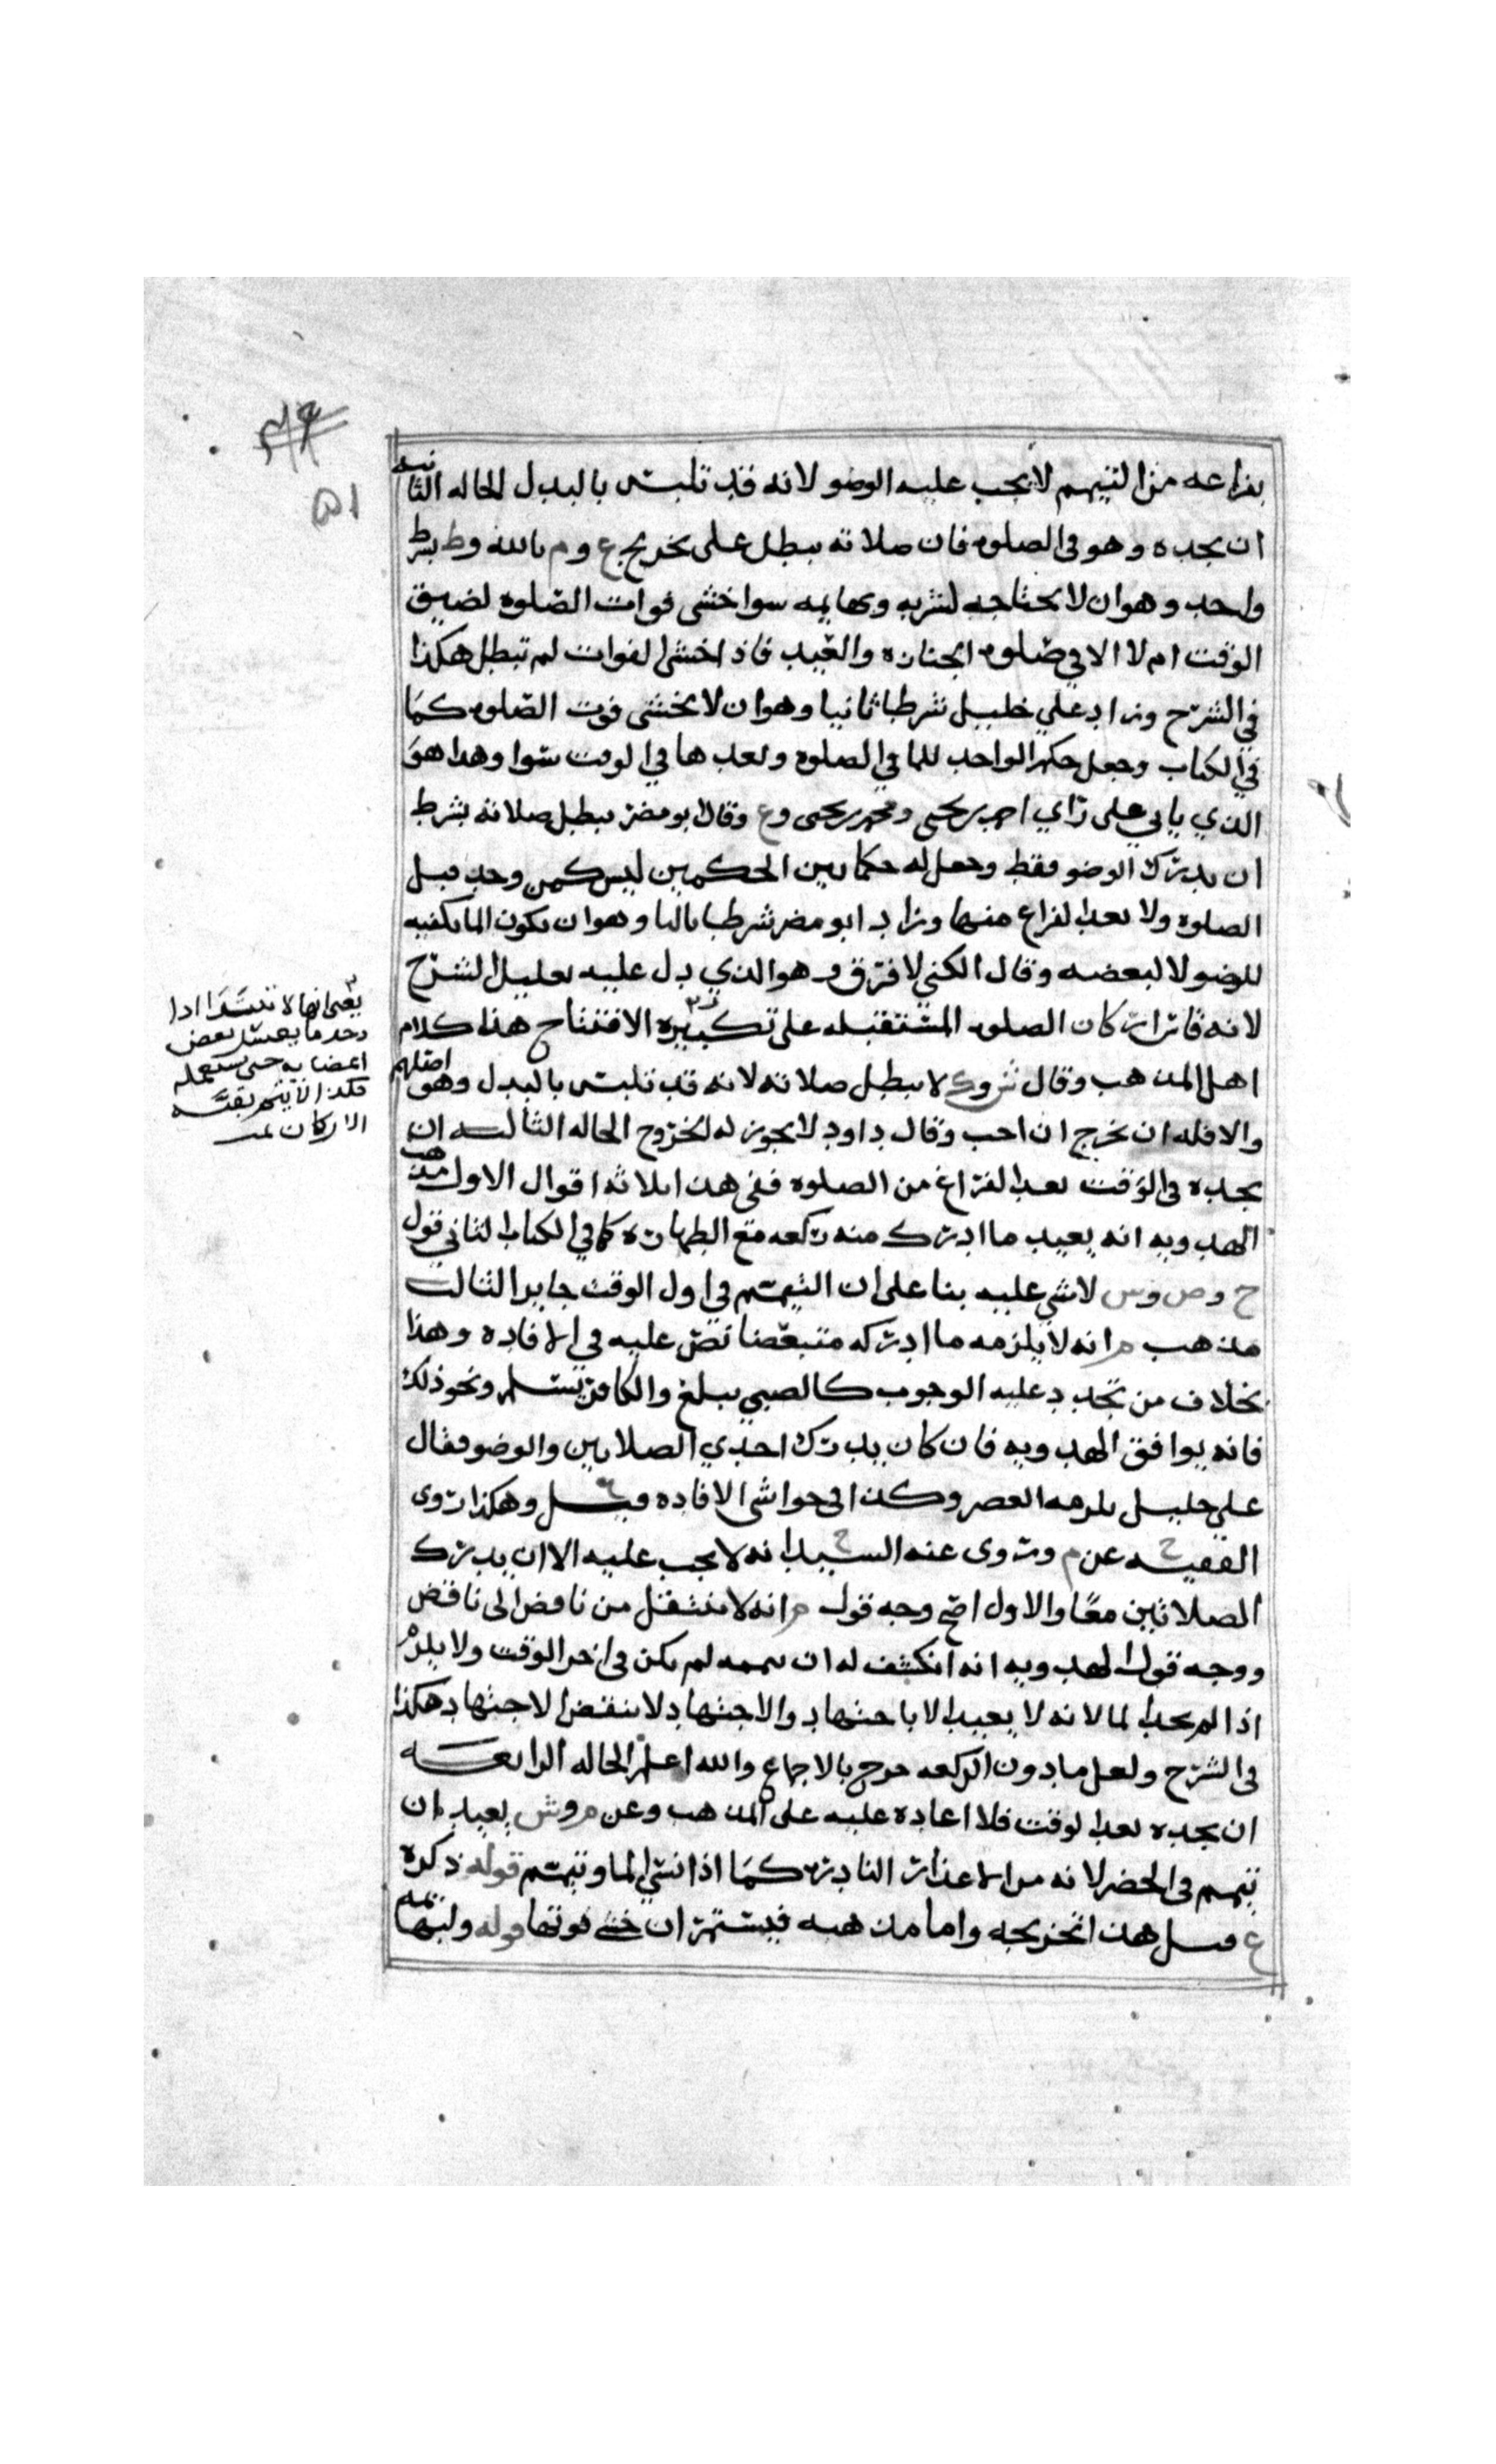 بفراغه من التيمم لا يجب عليه الوضو لانه قد تلبس بالبدل الحاله الثانيه
ان يجده وهو في الصلوه فان صلاته تبطل على تخريج ع و م بالله وط بشرط
واحد وهو ان لا يحتاجه لشربه وبهايمه سوا خشى فوات الصلوه لضيق
الوقت ام لا الا في صلوه الجنازه والعيد فاذا خشى الفوات لم تبطل هكذا
في الشرح وزاد علي خليل شرطا ثانيا وهو ان لا يخشى فوت الصلوه كما
في الكتاب وجعل حكم الواجد للما في الصلوه وبعدها في الوقت سوا وهذا هو
الذي ياتي على راي احمد بن يحيى ومحمد بن يحيى وع وقال ابو مضر تبطل صلاته بشرط
ان يدرك الوضو فقط وجعل له حكما بين الحكمين ليس كمن وجد قبل
الصلوه ولا بعد الفراغ منها وزاد ابو مضر شرطا ثالثا وهو ان يكون الما يكفيه
للوضو لا لبعضه وقال الكني لا فرق وهو الذي دل عليه تعليل الشرح
لانه قاس اركان الصلوه المستقبله على تكبيره الافتتاح هذا كلام
اهل المذهب وقال ش وك لا تبطل صلاته لانه قد تلبس بالبدل وهو اصلهم
والا فله ان يخرج ان احب وقال داود لا يجوز له الخروج الحاله الثالثه ان
يجده في الوقت بعد الفراغ من الصلوه ففي هذا ثلاثه اقوال الاول مذهب
الهدويه انه يعيد ما ادرك منه ركعه مع الطهاره كما في الكتاب الثاني قول
ح وص وس لا شي عليه بنا على ان التيمم في اول الوقت جايز الثالث
مذهب م انه لا يلزمه ما ادركه متبعضا نص عليه في الافاده وهذا
بخلاف من تجدد عليه الوجوب كالصبي يبلغ والكافر يسلم ونحو ذلك
فانه يوافق الهدويه فان كان يدرك احدي الصلاتين والوضو فقال
علي خليل يلزمه العصر وكذا في حواشي الافاده وقيل وهكذا روى
الفقيه ح عن م وروى عنه السيد ح انه لا يجب عليه الا ان يدرك
الصلاتين معًا والاول اصح وجه قول م انه لا ينتقل من ناقض الى ناقض
ووجه قول الهدويه انه انكشف له ان تيممه لم يكن في اخر الوقت ولا يلزم
اذا لم يجد الما لانه لا يعيد الا باجتهاد والاجتهاد لا ينقض الاجتهاد هكذا
في الشرح ولعل ما دون الركعه خرج بالاجماع والله اعلم الحاله الرابعه
ان يجده بعد الوقت فلا اعاده عليه على المذهب وعن م وش يعيد ان
تيمم في الحضر لانه من الاعذار النادره كما اذا نسي الما وتيمم قوله ذكره
ع قيل هذا تخريجه واما مذهبه فيستمر ان خشي فوتها قوله ولبهايمه
يعني انها لا تبتدا اذا
وجد ما يغسل بعض
اعضايه حتى يستعمله
فكذا لا يتمم بقيه
الاركان تمت
٥١